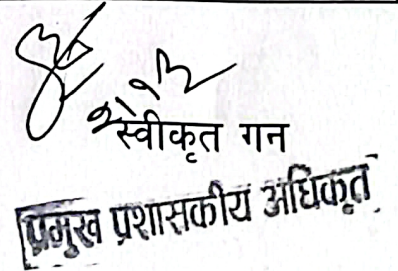 स्वीकृत गर्ने
प्रमुख प्रशासकीय अधिकृत